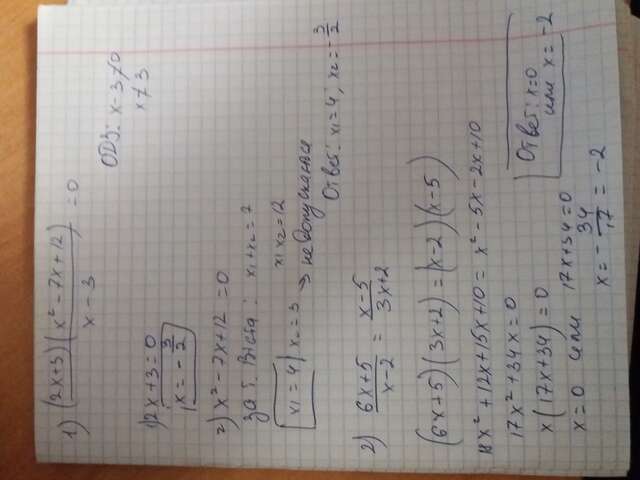 1) (2x+3)(x² - 7x + 12) / x - 3 = 0
ОДЗ: x - 3 ≠ 0
x ≠ 3
1) 2x + 3 = 0
x = - 3/2
2) x² - 7x + 12 = 0
за т. Вієта: x1 + x2 = 7
x1 x2 = 12
x1 = 4 x2 = 3 → не допускається
Ответ: x1 = 4; x2 = - 3/2
2) 6x+5 / x-2 = x-5 / 3x+2
(6x+5)(3x+2) = (x-2)(x-5)
18x² + 12x + 15x + 10 = x² - 5x - 2x + 10
17x² + 34x = 0
x(17x + 34) = 0
x = 0 или 17x + 34 = 0
x = - 34/17 = -2
Ответ: x = 0
или x = -2